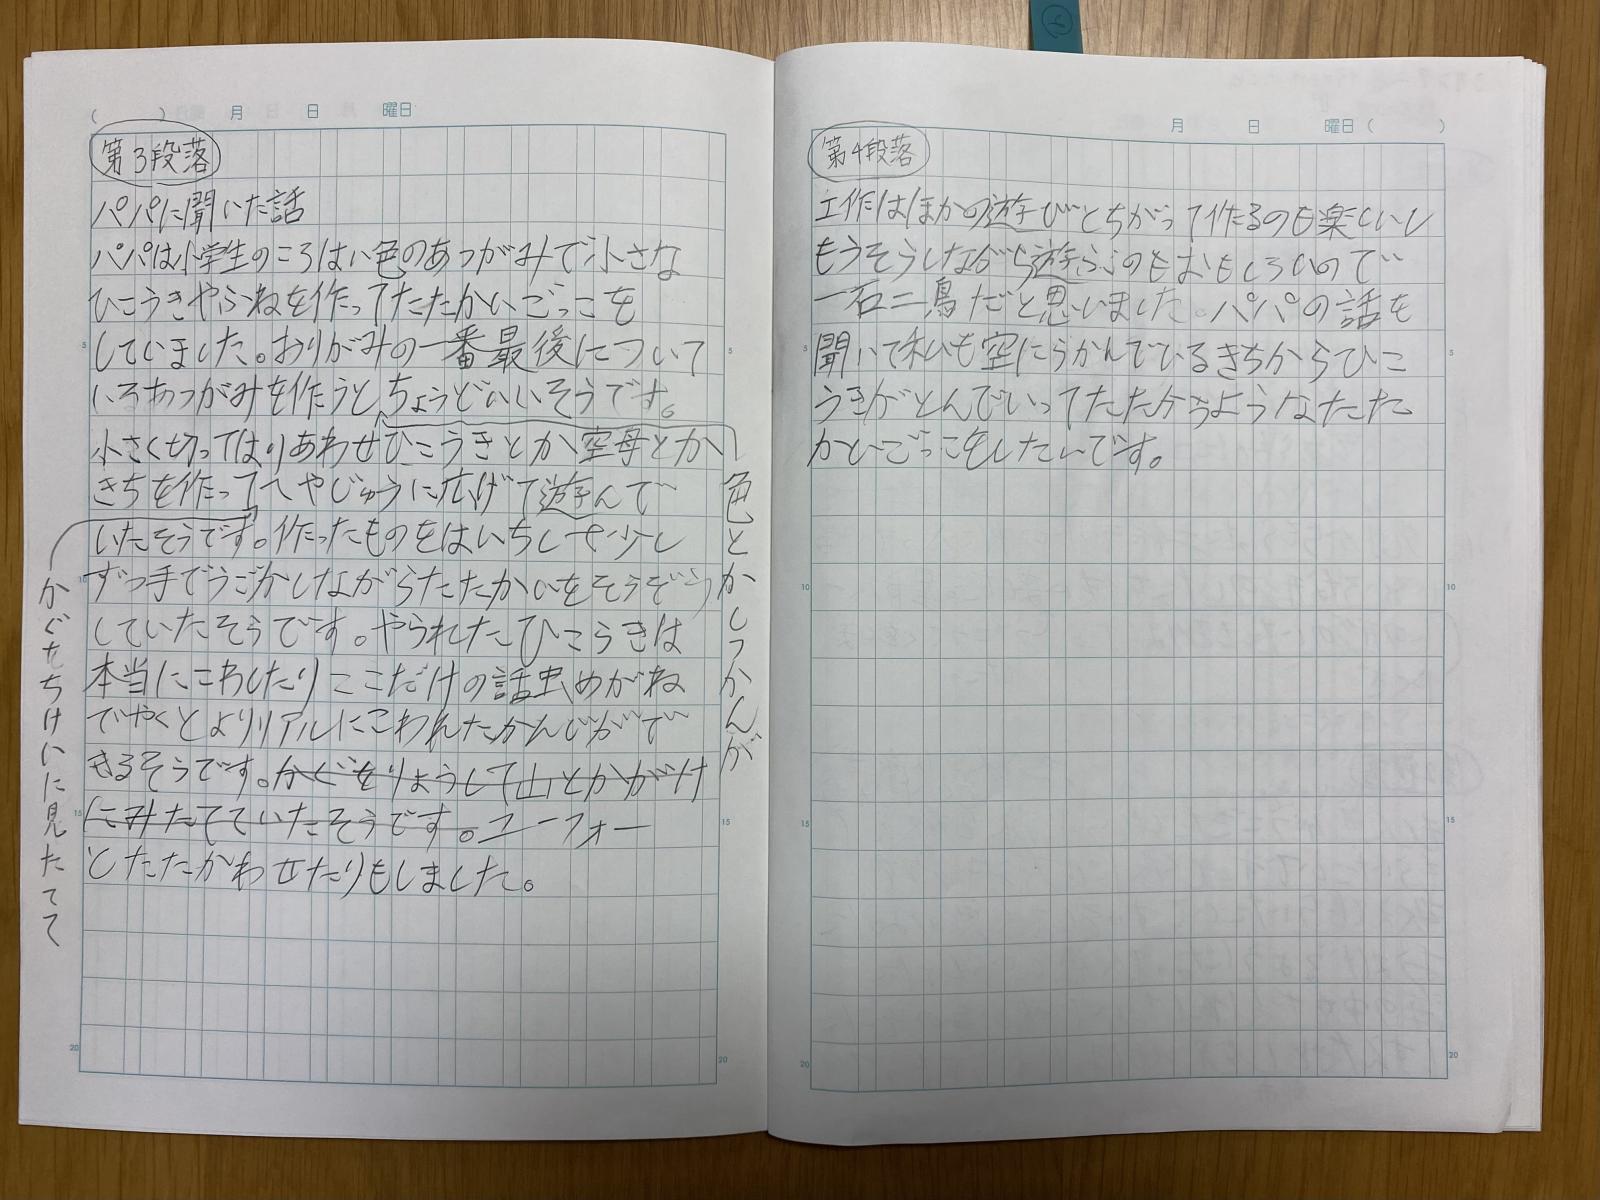 ( ) 月 日 曜日
第3段落
パパに聞いた話
パパは小学生のころはい色のあつがみで小さな
ひこうきやふねを作ってたたかいごっこを
していました。おりがみの一番最後について
いるあつがみを作うとちょうどいいそうです。
色とかしつかんが
小さく切ってはりあわせひこうきとか空母とか
きちを作ってへやじゅうに広げて遊んで
かぐをちけいに見たてて
いたそうです。作ったものをはいちして少し
ずつ手でうごかしながらたたかいをそうぞう
していたそうです。やられたひこうきは
本当にこわしたりここだけの話虫めがね
でやくとよりリアルにこわれたかんじがで
きるそうです。かぐをりようして山とかがけ
にみたてていたそうです。ユーフォー
とたたかわせたりもしました。
月 日 曜日 ( )
第4段落
工作はほかの遊びとちがって作るのも楽しいし
もうそうしながら遊ぶのもおもしろいので
一石二鳥だと思いました。パパの話を
聞いて私も空にうかんでいるきちからひこ
うきがとんでいってたたかうようなたた
かいごっこをしたいです。
5
10
15
20
5
15
20
5
10
15
20
5
10
15
20